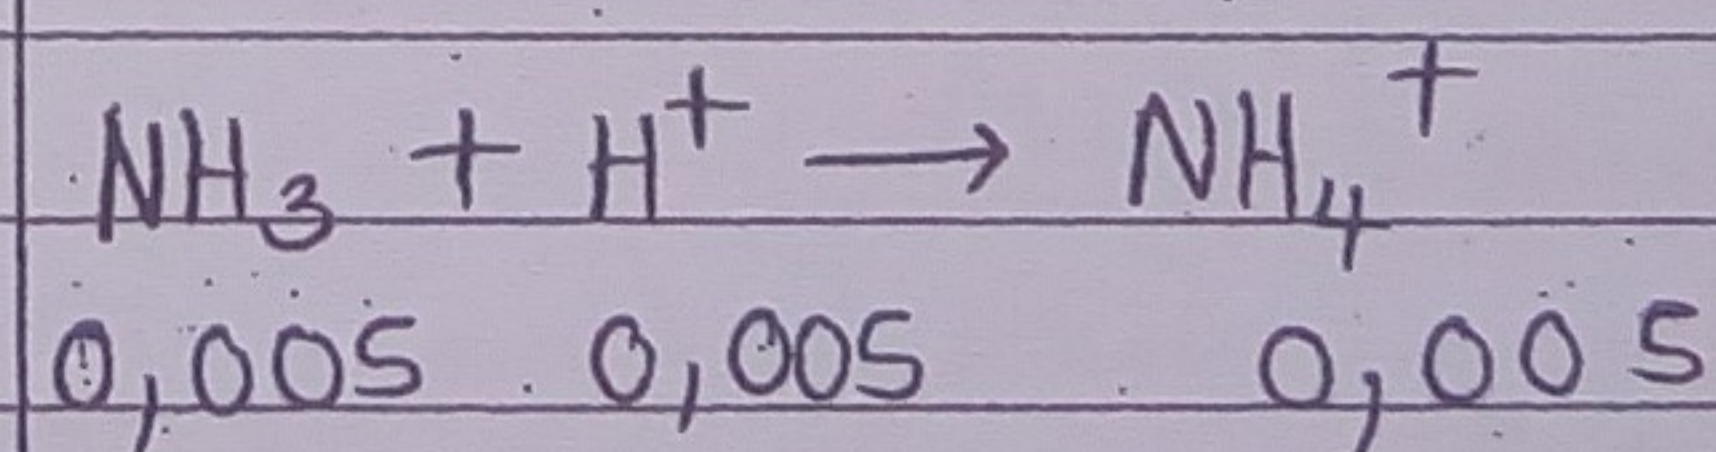 NH₃ + H⁺ → NH₄⁺
0,005 0,005 0,005